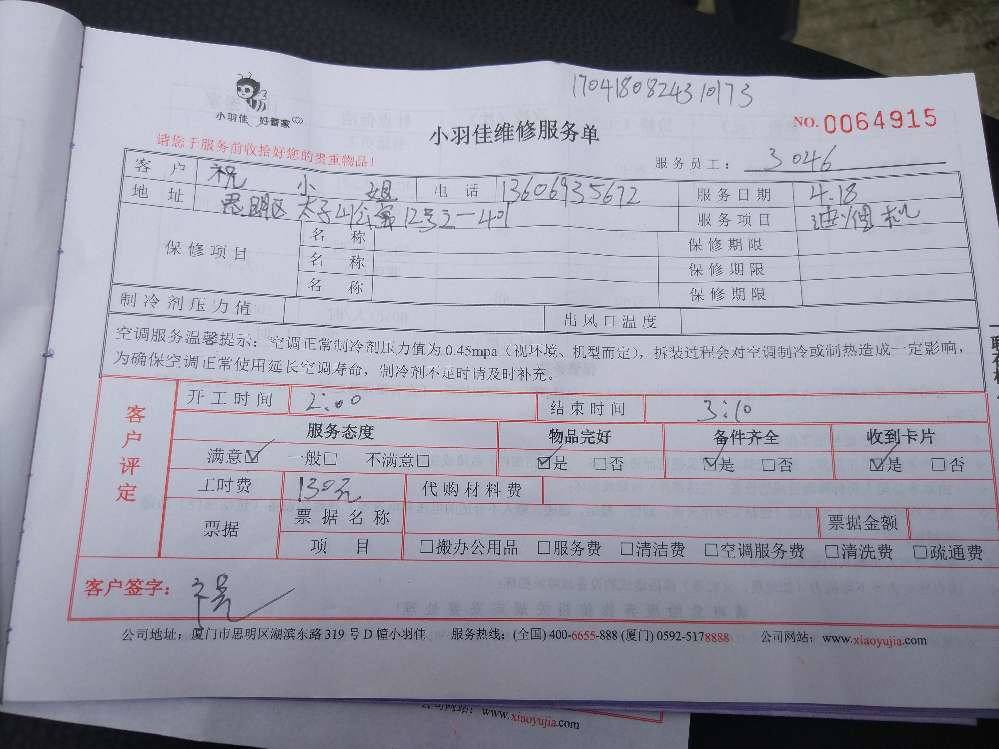 1704180824310173
小羽佳 好管家
小羽佳维修服务单
NO. 0064915
请您于服务前收拾好您的贵重物品！
服务员工： 3046
客 户 祝 小 姐 电 话 13606935672 服务日期 4.18
地 址 思明区太子山公寓12号2-401 服务项目 油烟机
保修项目 名 称 保修期限
名 称 保修期限
名 称 保修期限
制冷剂压力值 出风口温度
空调服务温馨提示：空调正常制冷剂压力值为0.45mpa（视环境、机型而定），拆装过程会对空调制冷或制热造成一定影响，
为确保空调正常使用延长空调寿命，制冷剂不足时请及时补充。
客户评定
开工时间 2:00 结束时间 3:10
服务态度 物品完好 备件齐全 收到卡片
满意☑ 一般□ 不满意□ ☑是 □否 ☑是 □否 ☑是 □否
工时费 130元 代购材料费
票据 票据名称 票据金额
项 目 □搬办公用品 □服务费 □清洁费 □空调服务费 □清洗费 □疏通费
客户签字：
公司地址：厦门市思明区湖滨东路319号D幢小羽佳 服务热线：(全国) 400-6655-888 (厦门) 0592-5178888 公司网站：www.xiaoyujia.com
www.xiaoyujia.com